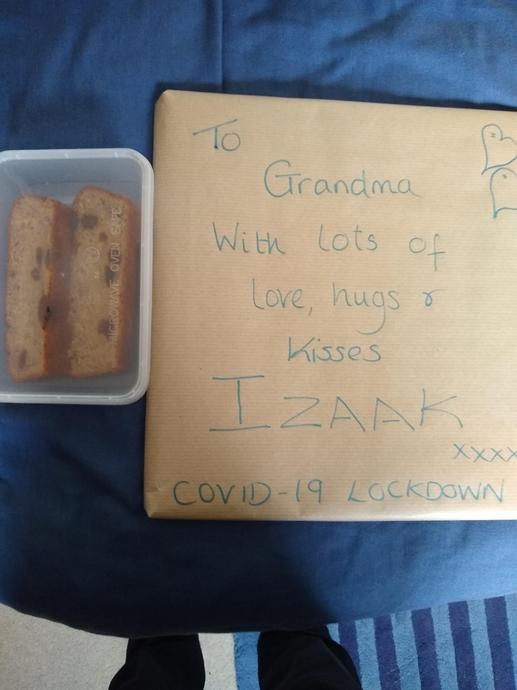 To
Grandma
With lots of
love, hugs &
kisses
IZAAK
xxxx
COVID-19 LOCKDOWN
MICROWAVE OVEN SAFE